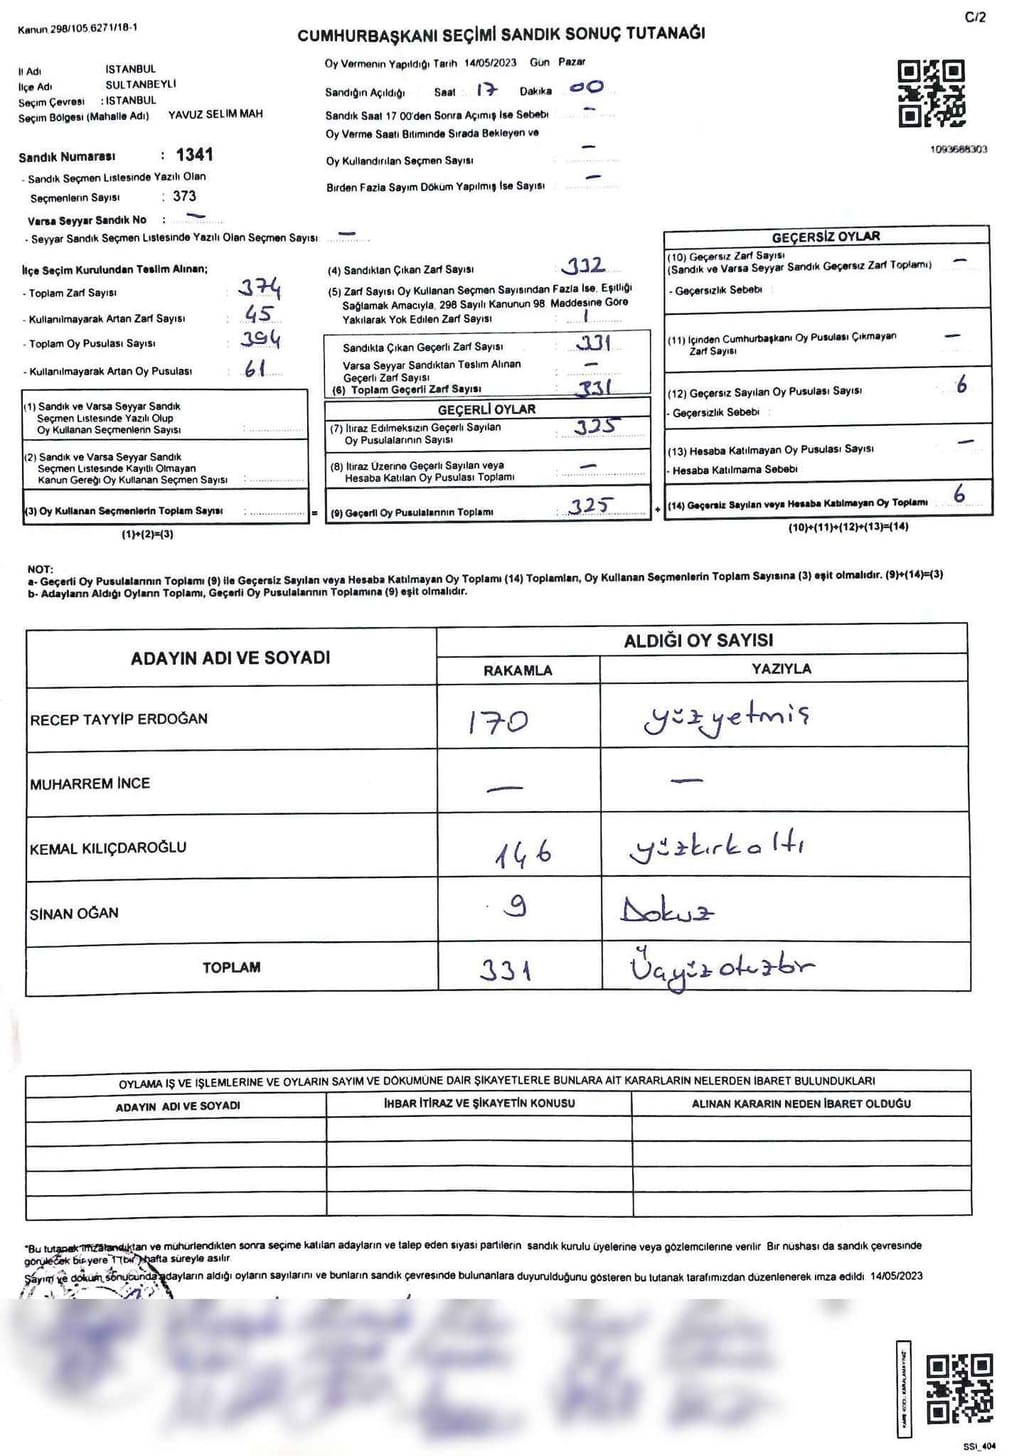 Kanun 298/105.6271/18-1
C/2
CUMHURBAŞKANI SEÇİMİ SANDIK SONUÇ TUTANAĞI
İl Adı İSTANBUL
İlçe Adı SULTANBEYLİ
Seçim Çevresi : İSTANBUL
Seçim Bölgesi (Mahalle Adı) YAVUZ SELİM MAH
Sandık Numarası : 1341
- Sandık Seçmen Listesinde Yazılı Olan
Seçmenlerin Sayısı : 373
Varsa Seyyar Sandık No : —
- Seyyar Sandık Seçmen Listesinde Yazılı Olan Seçmen Sayısı —
Oy Vermenin Yapıldığı Tarih 14/05/2023 Gün Pazar
Sandığın Açıldığı Saat 17 Dakika 00
Sandık Saat 17 00'den Sonra Açımış İse Sebebi —
Oy Verme Saati Bitiminde Sırada Bekleyen ve
Oy Kullandırılan Seçmen Sayısı —
Birden Fazla Sayım Döküm Yapılmış İse Sayısı —
1093688303
İlçe Seçim Kurulundan Teslim Alınan;
- Toplam Zarf Sayısı : 374
- Kullanılmayarak Artan Zarf Sayısı : 45
- Toplam Oy Pusulası Sayısı : 394
- Kullanılmayarak Artan Oy Pusulası : 61
(1) Sandık ve Varsa Seyyar Sandık
Seçmen Listesinde Yazılı Olup
Oy Kullanan Seçmenlerin Sayısı :
(2) Sandık ve Varsa Seyyar Sandık
Seçmen Listesinde Kayıtlı Olmayan
Kanun Gereği Oy Kullanan Seçmen Sayısı :
(3) Oy Kullanan Seçmenlerin Toplam Sayısı :
(1)+(2)=(3)
(4) Sandıktan Çıkan Zarf Sayısı 332
(5) Zarf Sayısı Oy Kullanan Seçmen Sayısından Fazla İse, Eşitliği
Sağlamak Amacıyla, 298 Sayılı Kanunun 98. Maddesine Göre
Yakılarak Yok Edilen Zarf Sayısı : 1
Sandıkta Çıkan Geçerli Zarf Sayısı : 331
Varsa Seyyar Sandıktan Teslim Alınan
Geçerli Zarf Sayısı —
(6) Toplam Geçerli Zarf Sayısı : 331
GEÇERLİ OYLAR
(7) İtiraz Edilmeksizin Geçerli Sayılan
Oy Pusulalarının Sayısı : 325
(8) İtiraz Üzerine Geçerli Sayılan veya
Hesaba Katılan Oy Pusulası Toplamı : —
= (9) Geçerli Oy Pusulalarının Toplamı : 325 +
GEÇERSİZ OYLAR
(10) Geçersiz Zarf Sayısı
(Sandık ve Varsa Seyyar Sandık Geçersiz Zarf Toplamı) —
- Geçersizlik Sebebi :
(11) İçinden Cumhurbaşkanı Oy Pusulası Çıkmayan
Zarf Sayısı —
(12) Geçersiz Sayılan Oy Pusulası Sayısı 6
- Geçersizlik Sebebi :
(13) Hesaba Katılmayan Oy Pusulası Sayısı —
- Hesaba Katılmama Sebebi
(14) Geçersiz Sayılan veya Hesaba Katılmayan Oy Toplamı 6
(10)+(11)+(12)+(13)=(14)
NOT:
a- Geçerli Oy Pusulalarının Toplamı (9) ile Geçersiz Sayılan veya Hesaba Katılmayan Oy Toplamı (14) Toplamları, Oy Kullanan Seçmenlerin Toplam Sayısına (3) eşit olmalıdır. (9)+(14)=(3)
b- Adayların Aldığı Oyların Toplamı, Geçerli Oy Pusulalarının Toplamına (9) eşit olmalıdır.
ADAYIN ADI VE SOYADI ALDIĞI OY SAYISI
RAKAMLA YAZIYLA
RECEP TAYYİP ERDOĞAN 170 yüzyetmiş
MUHARREM İNCE — —
KEMAL KILIÇDAROĞLU 146 yüzkırkaltı
SİNAN OĞAN 9 Dokuz
TOPLAM 331 Üçyüzotuzbir
OYLAMA İŞ VE İŞLEMLERİNE VE OYLARIN SAYIM VE DÖKÜMÜNE DAİR ŞİKAYETLERLE BUNLARA AİT KARARLARIN NELERDEN İBARET BULUNDUKLARI
ADAYIN ADI VE SOYADI İHBAR İTİRAZ VE ŞİKAYETİN KONUSU ALINAN KARARIN NEDEN İBARET OLDUĞU
*Bu tutanak imzalandıktan ve mühürlendikten sonra seçime katılan adayların ve talep eden siyasi partilerin sandık kurulu üyelerine veya gözlemcilerine verilir Bir nüshası da sandık çevresinde
görülecek bir yere 1 (bir) hafta süreyle asılır.
Sayım ve döküm sonucunda adayların aldığı oyların sayılarını ve bunların sandık çevresinde bulunanlara duyurulduğunu gösteren bu tutanak tarafımızdan düzenlenerek imza edildi 14/05/2023
SSİ_404